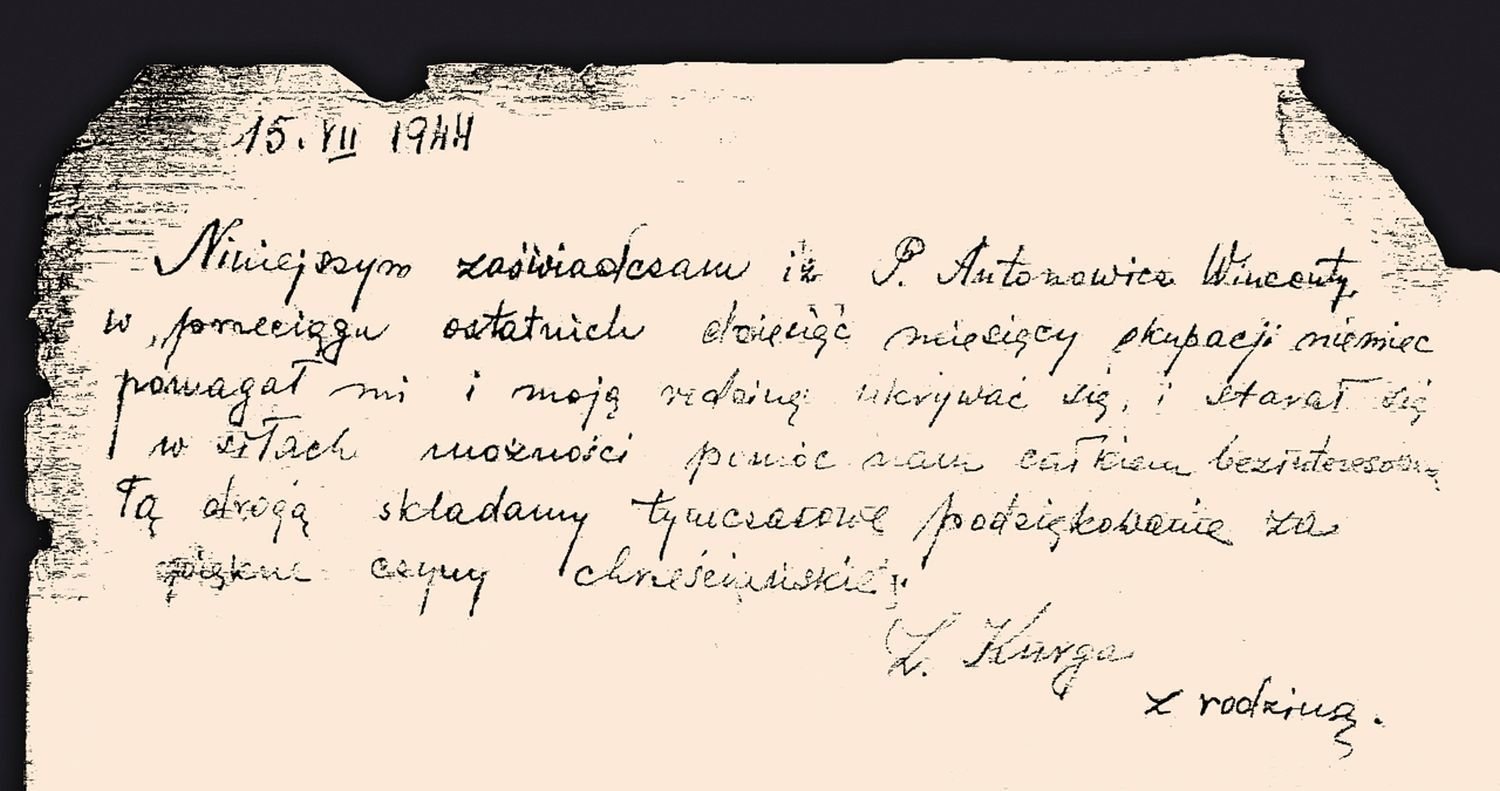 15. VII 1944
Niniejszym zaświadczam iż P. Antonowicz Wincenty,
w przeciągu ostatnich dziesięć miesięcy okupacji niemiec
pomagał mi i moją rodziną ukrywać się, i starał się
w siłach możności pomóc nam całkiem bezinteresowną
Tą drogą składamy tymczasowe podziękowanie za
piękne czyny chrześciańskie
L. Kurga
z rodziną.